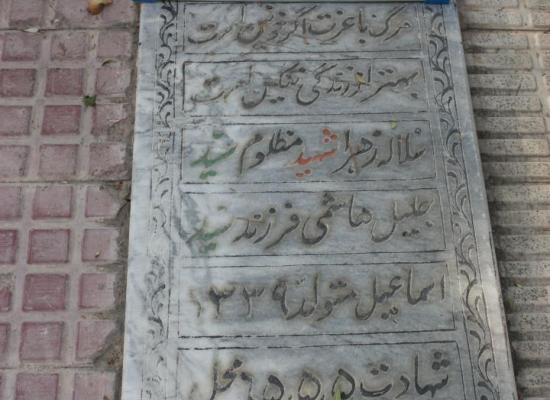 مرگ با عزت اگر خونین است
بهتر از زندگی ننگین است
سلاله زهرا شهید مظلوم سید
جلیل هاشمی فرزند سید
اسماعیل متولد ۱۳۳۹
شهادت ۶۵٫۵٫۵ محل